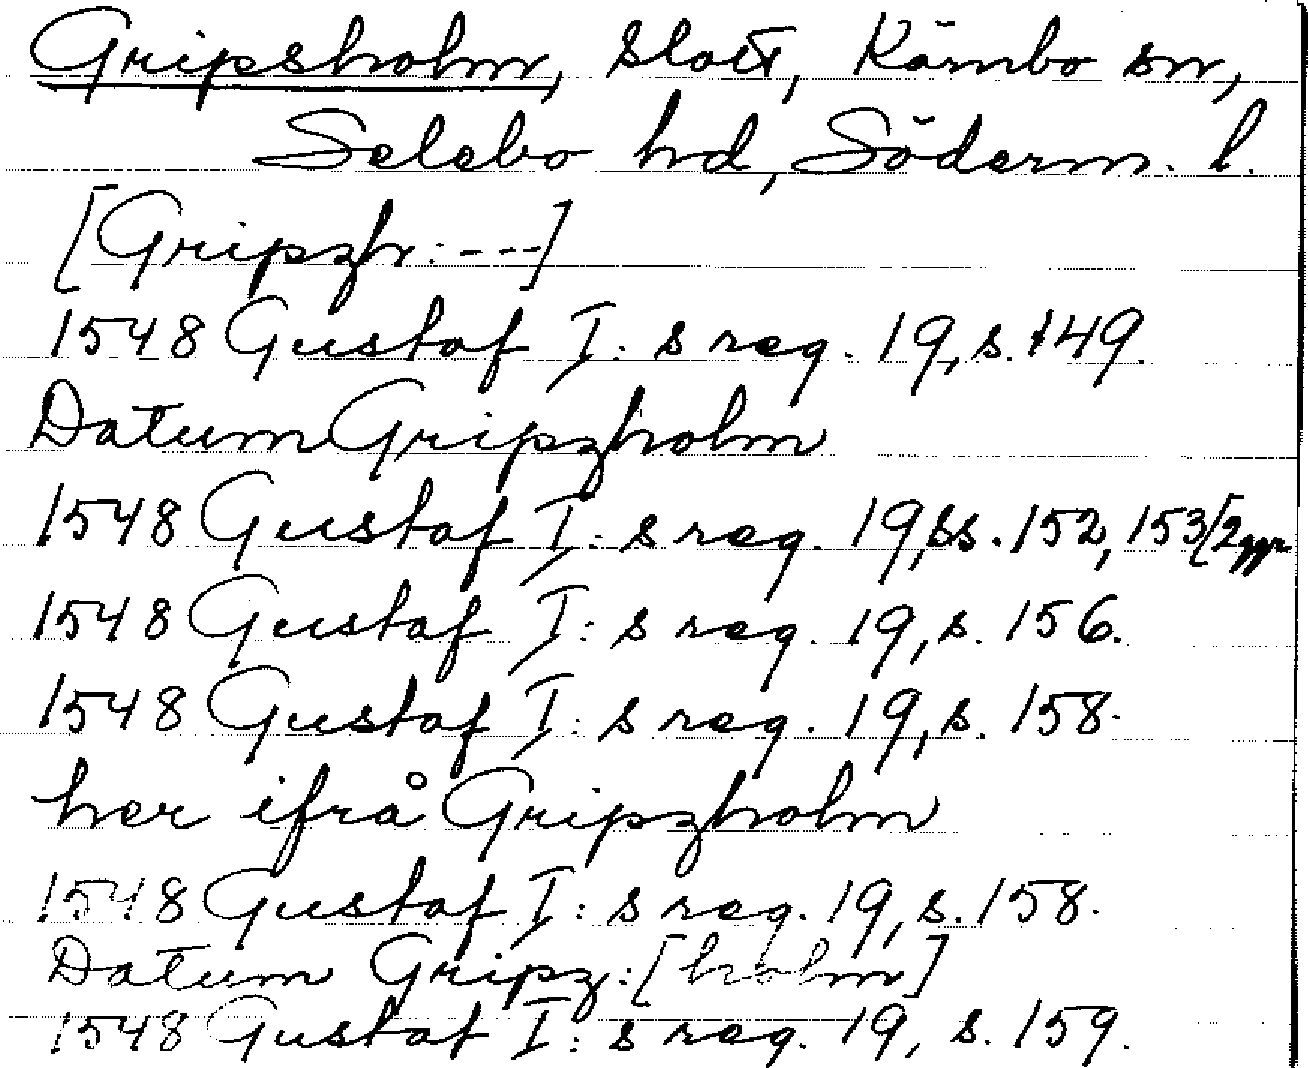 Gripsholm, slott, Kärnbo sn,
Selebo hd, Söderm. l.
[Gripzh: ---]
1548 Gustaf I: s reg. 19, s. 149.
Datum Gripzholm
1548 Gustaf I: s reg. 19, ss. 152, 153 [2 ggr
1548 Gustaf I: s reg. 19, s. 156.
1548 Gustaf I: s reg. 19, s. 158.
her ifrå Gripzholm
1548 Gustaf I: s reg. 19, s. 158.
Datum Gripz: [holm]
1548 Gustaf I: s reg. 19, s. 159.